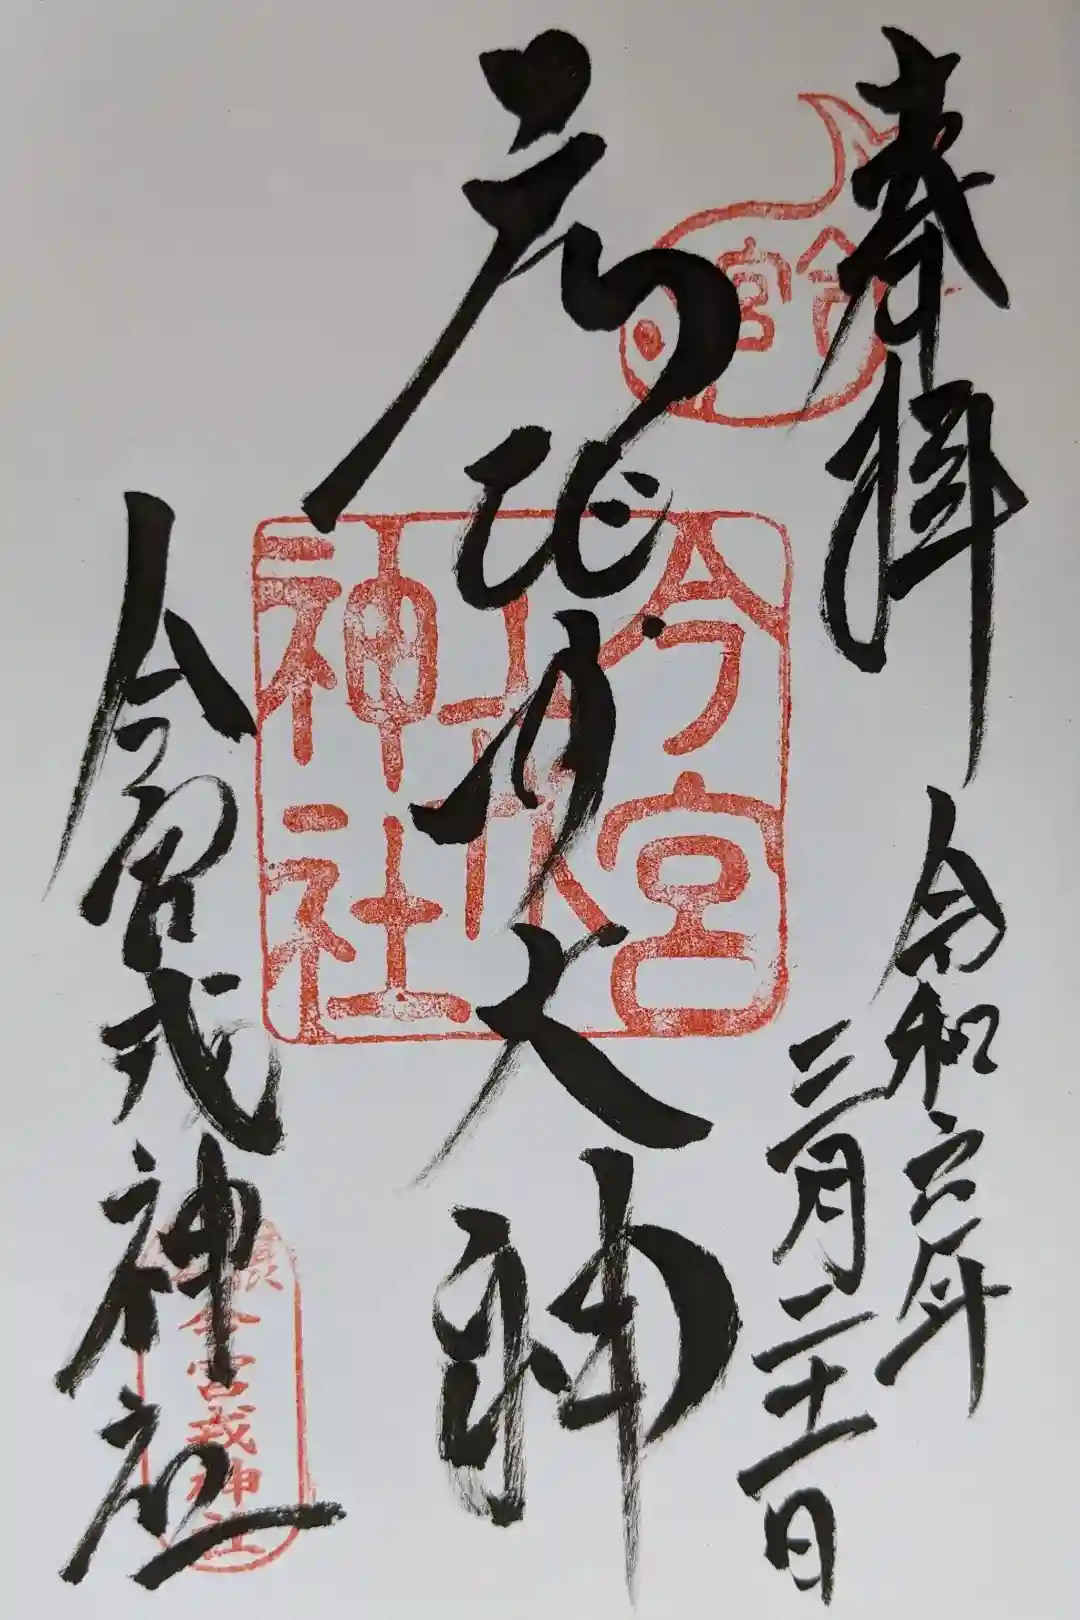 奉拝
令和六年
三月二十一日
今宮
廣田大神
今宮戎神社
今宮戎神社
今宮戎神社